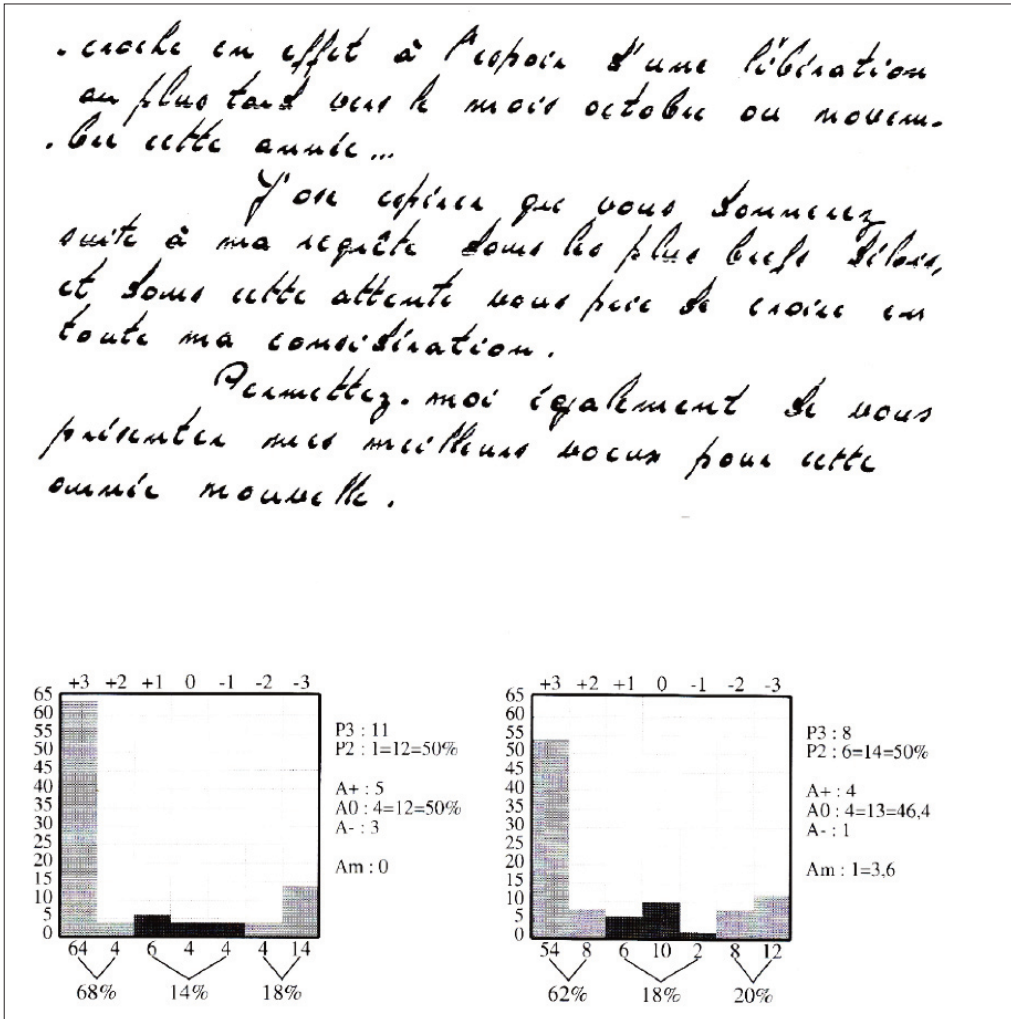 . croche en effet à l'espoir d'une libération
au plus tard vers le mois octobre ou novem-
. bre cette année...
J'ose espérer que vous donnerez
suite à ma requête dans les plus brefs délais,
et dans cette attente vous prie de croire en
toute ma considération.
Permettez-moi également de vous
présenter mes meilleurs voeux pour cette
année nouvelle.
+3 +2 +1 0 -1 -2 -3
65
60
55
50
45
40
35
30
25
20
15
10
5
0
64 4 6 4 4 4 14
68% 14% 18%
P3 : 11
P2 : 1=12=50%
A+ : 5
A0 : 4=12=50%
A- : 3
Am : 0
+3 +2 +1 0 -1 -2 -3
65
60
55
50
45
40
35
30
25
20
15
10
5
0
54 8 6 10 2 8 12
62% 18% 20%
P3 : 8
P2 : 6=14=50%
A+ : 4
A0 : 4=13=46,4
A- : 1
Am : 1=3,6